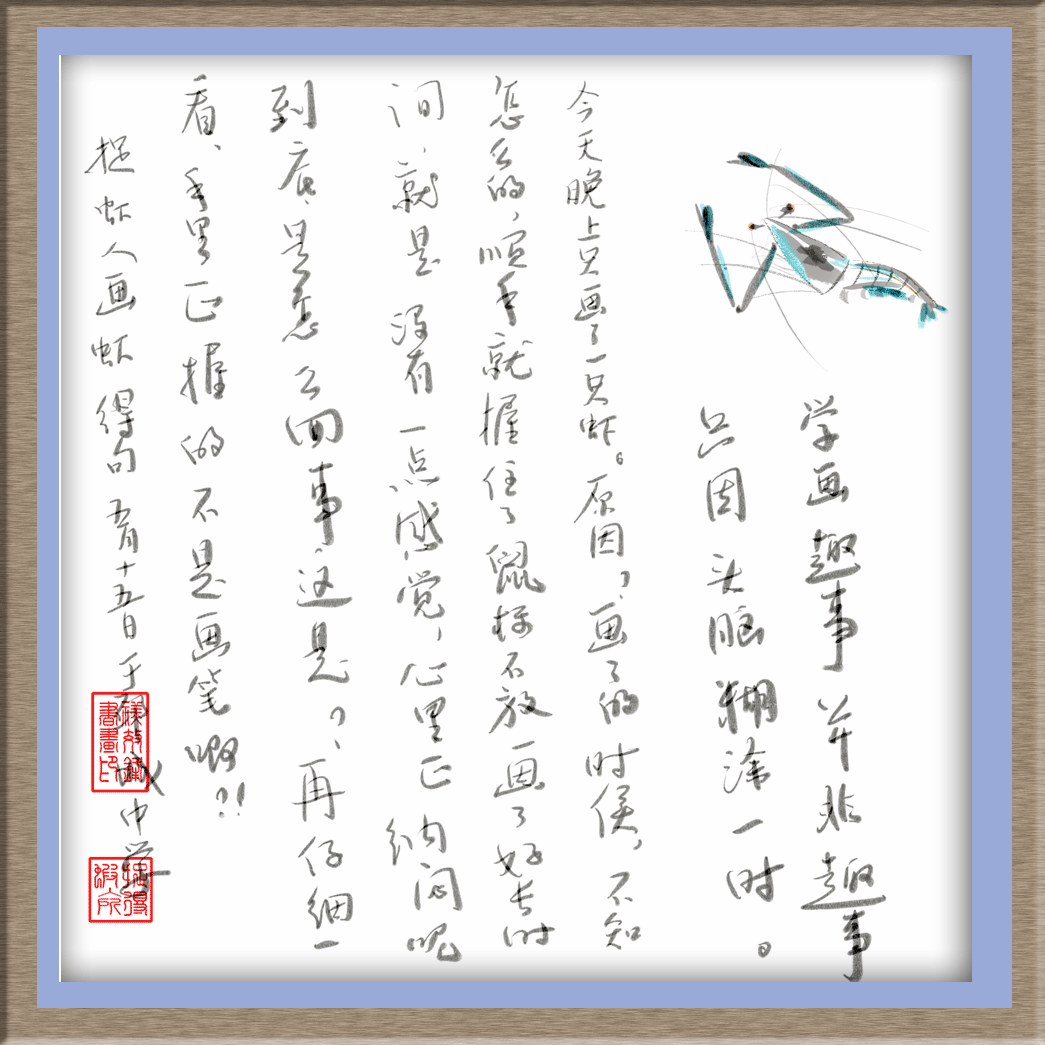 学画趣事并非趣事
只因头脑糊涂一时。
今天晚上只画了一只虾。原因,画了的时候,不知
怎么的,顺手就握住了鼠标不放画了好长时
间,就是没有一点感觉,心里正纳闷呢
到底是怎么回事这是?、再仔细一
看、手里正握的不是画笔啊?!
捉虾人画虾得句五月十五日于城中学
書畫印